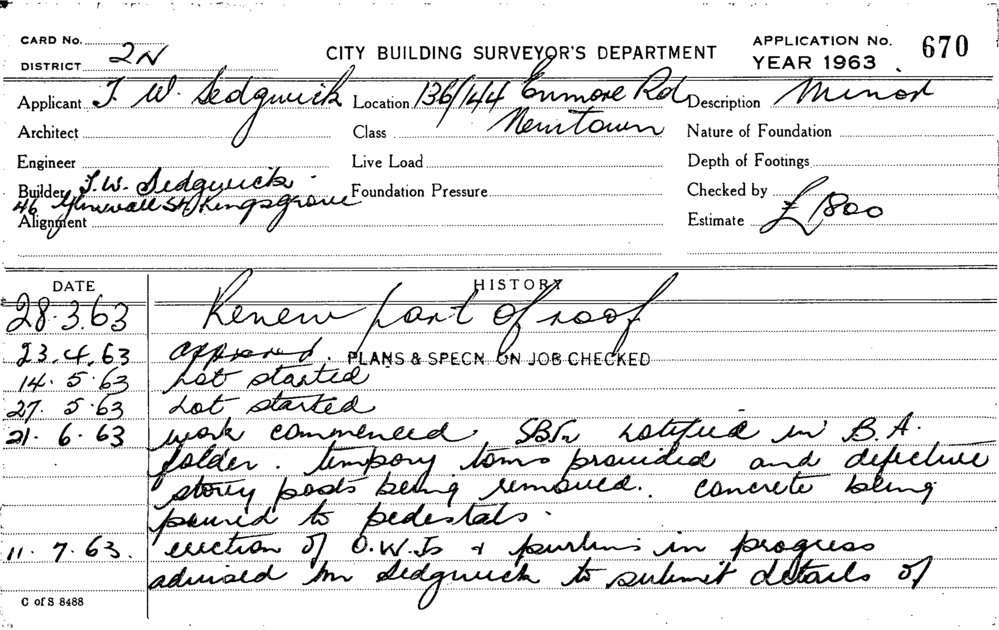 CARD No.
DISTRICT 2N
CITY BUILDING SURVEYOR'S DEPARTMENT
APPLICATION No. 670
YEAR 1963
Applicant T. W. Sedgwick Location 136/144 Enmore Rd Description Minor
Architect Class Newtown Nature of Foundation
Engineer Live Load Depth of Footings
Builder T.W. Sedgwick. Foundation Pressure Checked by
46 St Kingsgrove
Alignment Estimate £1800
DATE HISTORY
28.3.63 Renew part of roof
23.4.63 approved. PLANS & SPECN. ON JOB CHECKED
14.5.63 Not started
27.5.63 Not started
21.6.63 work commenced. notified in B.A.
folder. tempory toms provided and defective
storey posts being removed. concrete being
poured to pedestals.
11.7.63. erection of O.W.Js & purlins in progress
advised Mr Sedgwick to submit details of
C of S 8488